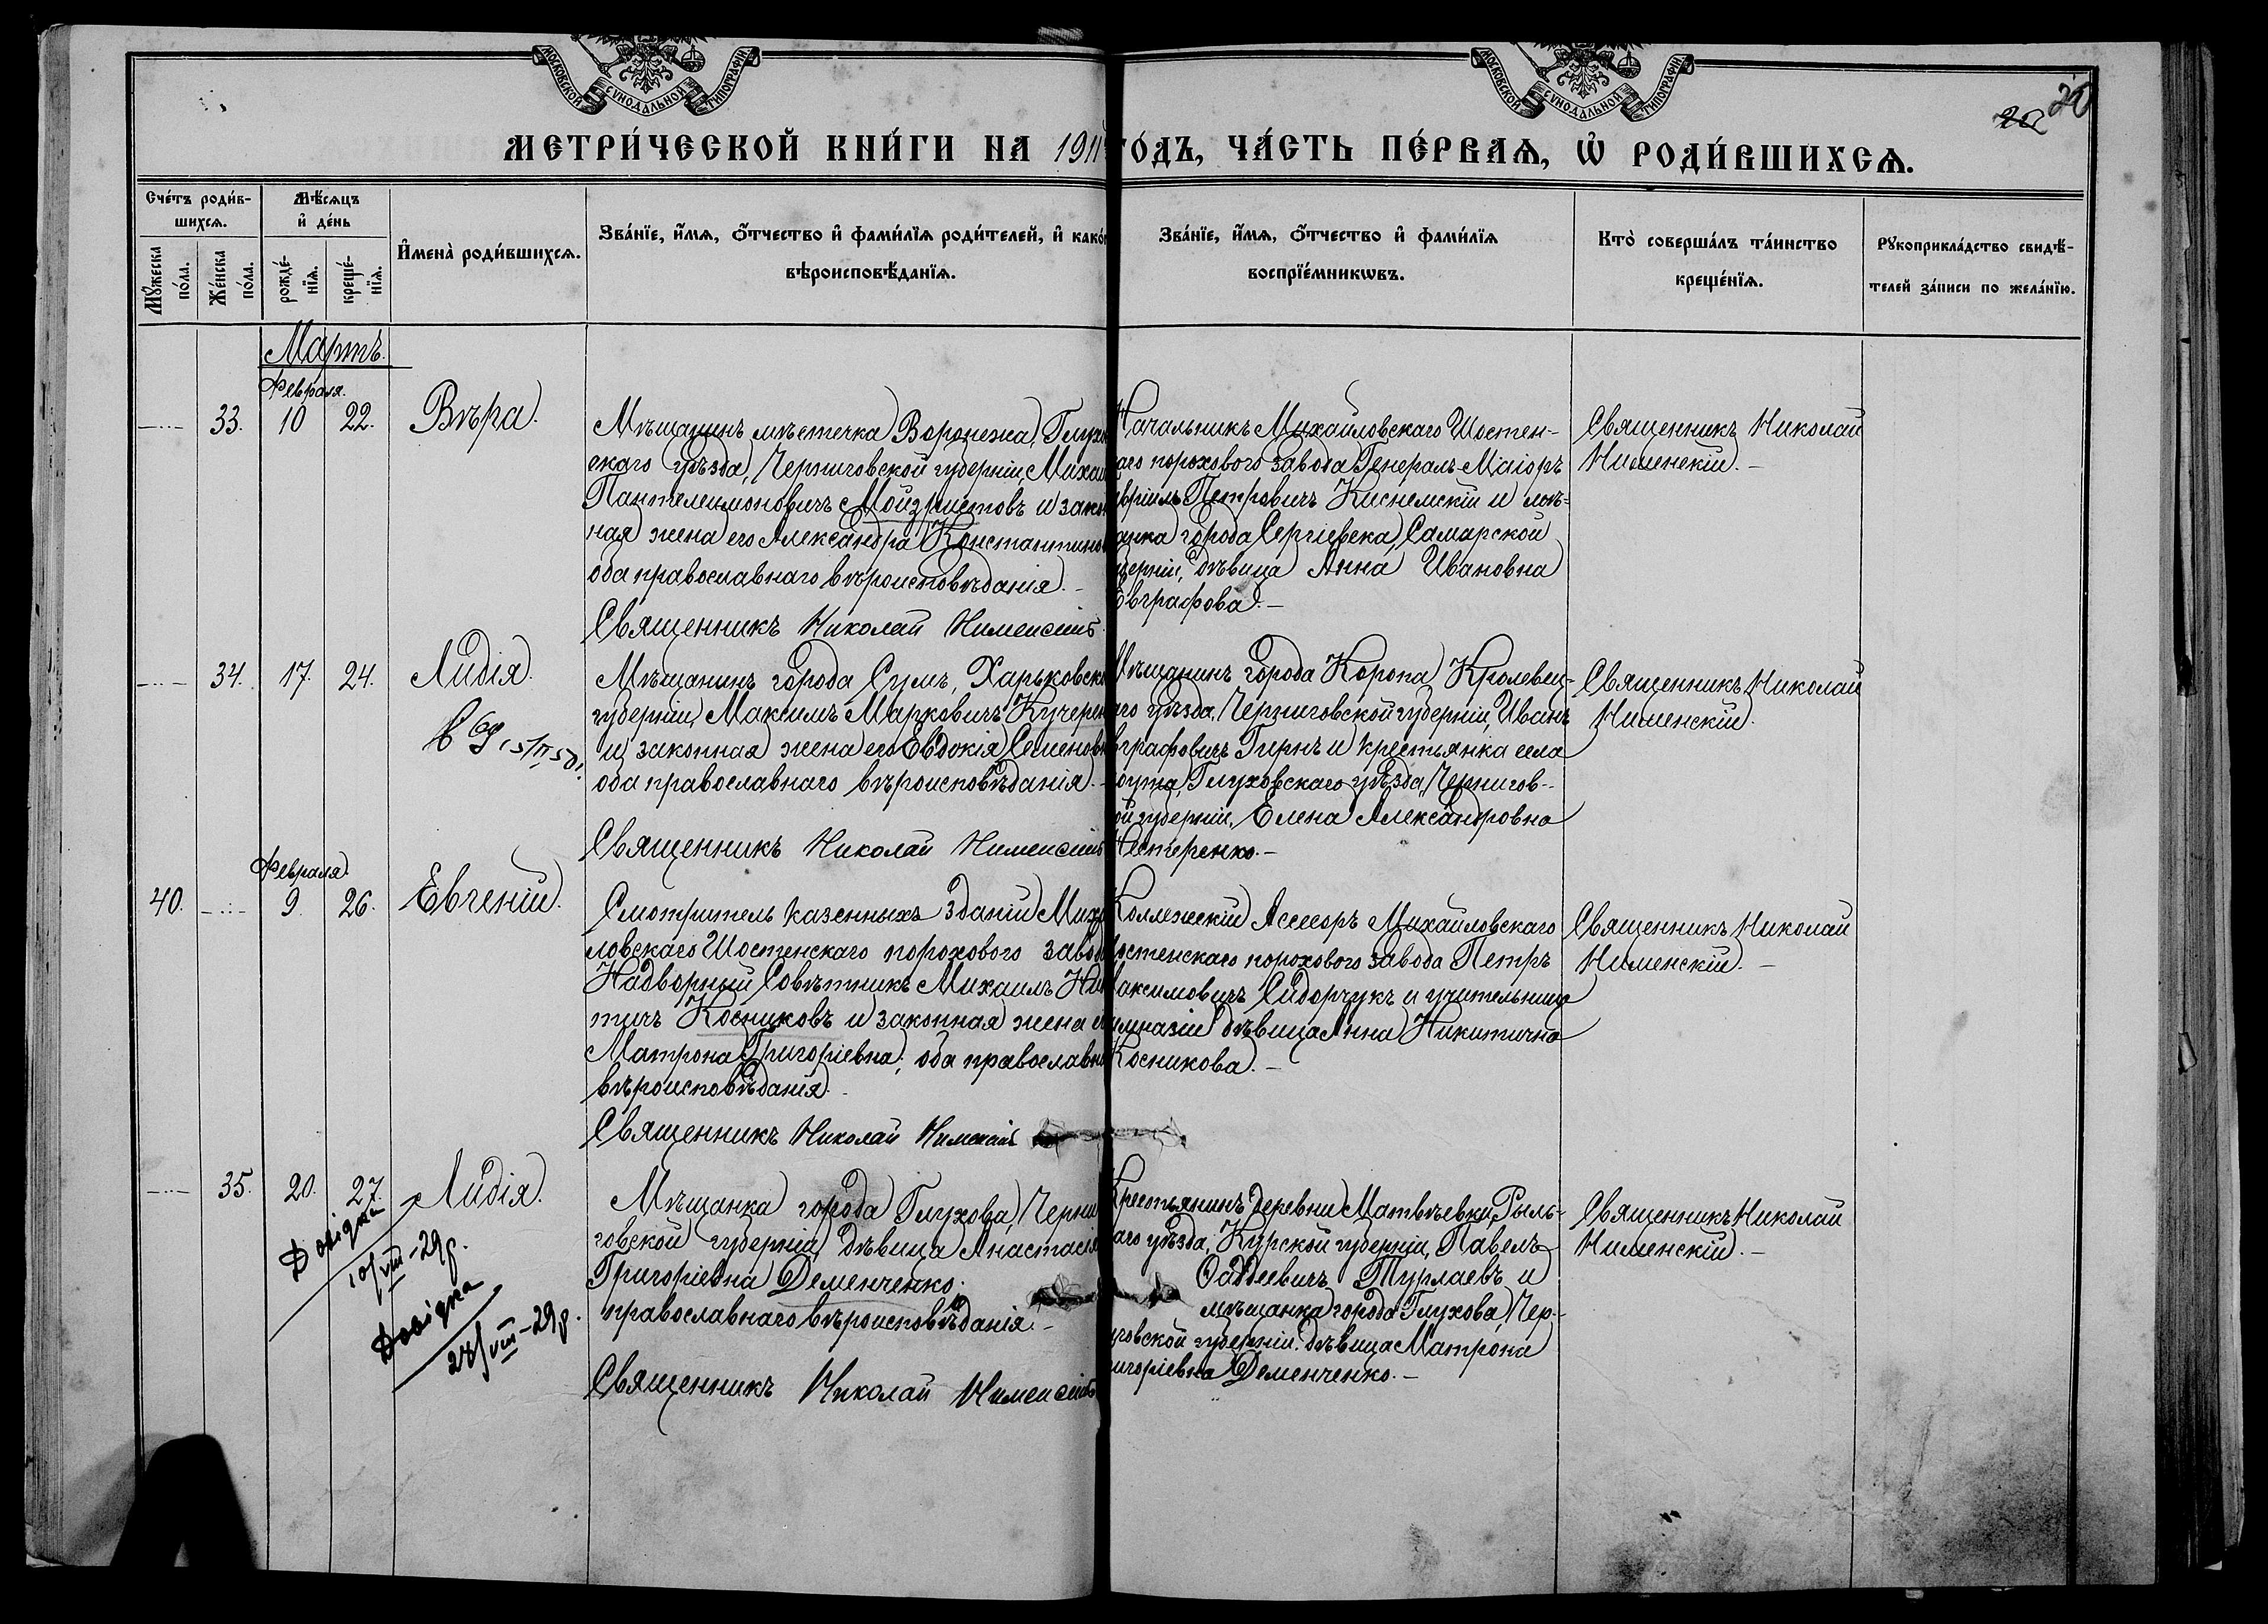 МОСКОВСКОЙ СУНОДАЛЬНОЙ ТИПОГРАФІИ
МОСКОВСКОЙ СУНОДАЛЬНОЙ ТИПОГРАФІИ
20
МЕТРИ́ЧЕСКОЙ КНИ́ГИ НА 1911
ГО́ДЪ, ЧА́СТЬ ПЕ́РВАѦ, Ѡ҆ РОДИ́ВШИХСѦ.
Сче́тъ роди́в-
шихсѧ.
Мꙋ́жеска
по́ла.
Же́нска
по́ла.
Мѣ́сѧцъ
и҆ де́нь
рожде́-
нїѧ.
креще́-
нїѧ.
И҆мена̀ роди́вшихсѧ.
Зва́нїе, и҆́мѧ, ѻ҆́тчество и҆ фами́лїѧ роди́телей, и҆ како́г
вѣроисповѣ́данїѧ.
Зва́нїе, и҆́мѧ, ѻ҆́тчество и҆ фами́лїѧ
воспрїе́мникѡвъ.
Кто̀ соверша́лъ та́инство
креще́нїѧ.
Рꙋкоприкла́дство свидѣ́-
телей за́писи по жела́нїю.
Мартъ.
Февраля.
33. 10 22. Вѣра.
Мѣщанинъ мѣстечка Воронежа, Глухо
скаго уѣзда, Черниговской губерніи, Михаи
Пантелеимоновичъ Мойзристовъ и закон
ная жена его Александра Константинов
оба православнаго вѣроисповѣданія.-
Священникъ Николай Нименскій
Начальникъ Михайловскаго Шостен-
аго порохового завода Генералъ-Маіоръ
вріилъ Петровичъ Киснемскій и мѣ-
анка города Сергіевска, Самарской
берніи, дѣвица Анна Ивановна
Евграфова.-
Священникъ Николай
Нименскій.-
34. 17. 24. Лидія.
Мѣщанинъ города Сумъ, Харьковск
губерніи, Максимъ Марковичъ Кучерен
и законная жена его Евдокія Семенов
оба православнаго вѣроисповѣданія.-
Священникъ Николай Нименскій
Мѣщанинъ города Коропа, Кролевец-
аго уѣзда, Черниговской губерніи, Иванъ
вграфовичъ Гирнъ и крестьянка села
Глуховскаго уѣзда, Чернигов-
ой губерніи, Елена Александровна
Нестеренко.-
Священникъ Николай
Нименскій.
Февраля.
40. 9. 26. Евгеній.
Смотритель казенныхъ зданій Миха
ловскаго Шостенскаго порохового завод
Надворный Совѣтникъ Михаилъ Ник
тичъ Косниковъ и законная жена е
Матрона Григоріевна; оба православн
вѣроисповѣданія.-
Священникъ Николай Нименскій
Коллежскій Ассесоръ Михайловскаго
остенскаго порохового завода Петръ
аксимовичъ Сидорчукъ и учительница
имназіи дѣвица Анна Никитична
Косникова.-
Священникъ Николай
Нименскій.-
35. 20. 27. Лидія.
Довідка
10/VIII-29р.
Довідка
28/VIII-29р.
Мѣщанка города Глухова, Черни
говской губерніи, дѣвица Анастасія
Григоріевна Деменченко,
православнаго вѣроисповѣданія.-
Священникъ Николай Нименскій
Крестьянинъ деревни Матвѣевки, Рыль-
аго уѣзда, Курской губерніи, Павелъ
Ѳаддеевичъ Турлаевъ и
мѣщанка города Глухова, Чер-
говской губерніи, дѣвица Матрона
игоріевна Деменченко.-
Священникъ Николай
Нименскій.-